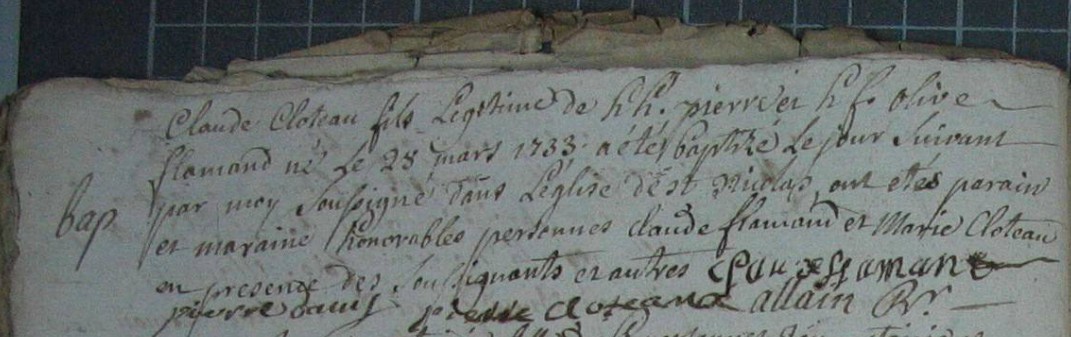 Claude Cloteau fils Legitime de h h. pierre et h f. olive
flamand né Le 28 mars 1733 a été baptizé Le jour suivant
bap
par moy soussigné dans L'église de st Nicolas, ont etés parain
et maraine honorables personnes claude flamand et Marie Cloteau
en presence des soussignants et autres
pierre pierre cloteau allain